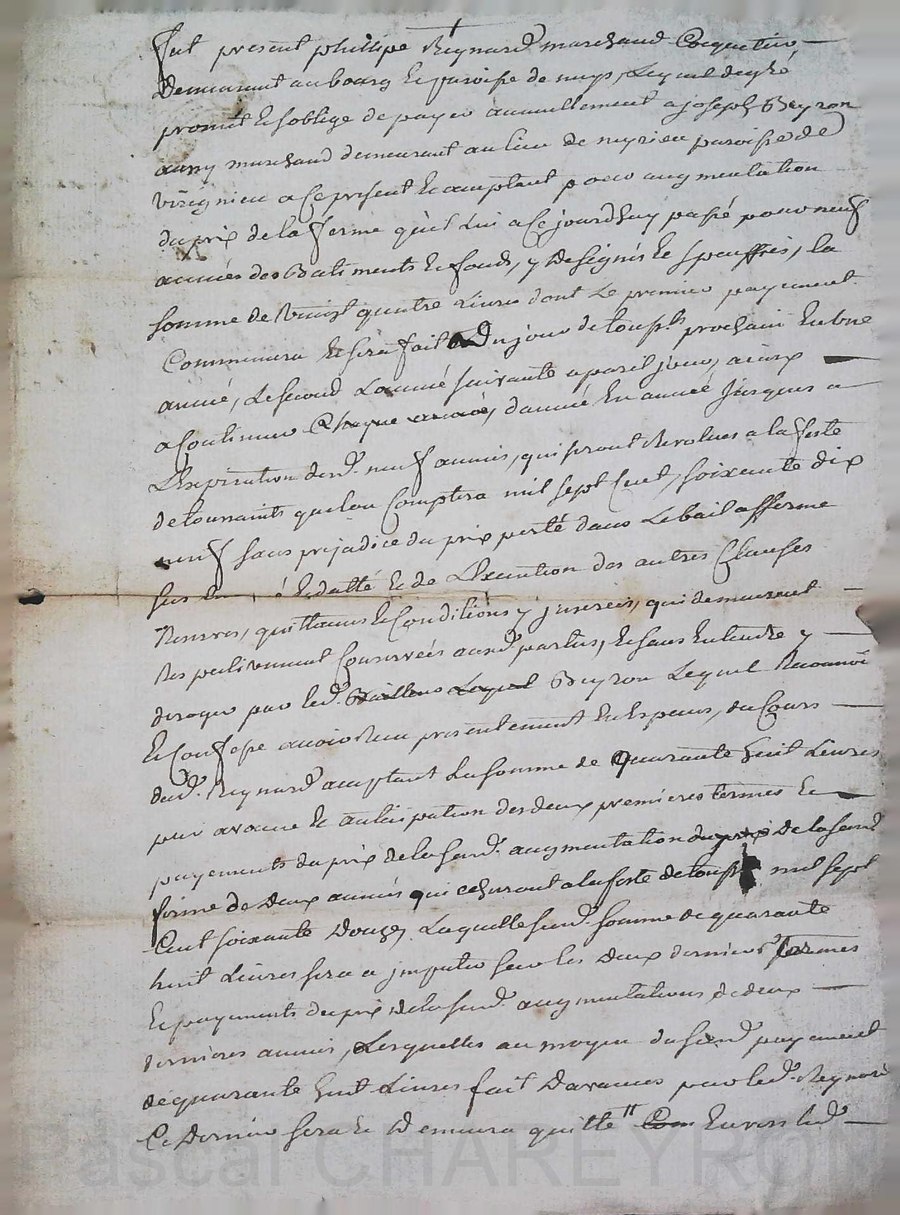 fut present phillipe Reynard marchand Coquetier
Demeurant au bourg et paroisse de Lequel de gré
promit et s'oblige de payer annuellement a joseph Beyron
aussy marchand demeurant au lieu de myrieu paroisse de
virignieu a ce present et acceptant pour augmentation
du prix de la ferme qu'il lui a ce jourdhuy passé pour neuf
années des Batiments et fonds, y designés et specifiés, la
somme de vingt quatre Livres dont Le premier payement
Commencera et sera fait du jour de touss.ts prochain En une
année, Le second L'année suivante a pareil jour, ainsy
a Continuer Chaque année, d'année En année jusques a
L'Expiration desd. neuf années, qui seront Revolues a la feste
de toussaints que l'on Comptera mil sept Cent, soixante dix
neuf sans prejudice du prix porté dans Le bail afferme
sus datté et de L'Execution des autres Clauses
Reserves, quittances et Conditions y inserées, qui demeurent
Respectivement Conservées auxd. parties, et sans Entendre y
deroger par led. Beyron Lequel Reconnoit
et Confesse avoir Receu presentement En Especes, du Cours
dud. Reynard acceptant La somme de quarante huit Livres
pour avance et anticipation des deux premieres termes et
payements du prix de la susd. augmentation du prix de la susd.
ferme de Deux années qui echeront a la feste de touss.ts mil sept
Cent soixante Douze, Laquelle susd. somme de quarante
huit Livres sera a imputer sur les Deux derniers termes
et payements du prix de la susd. augmentations de deux
dernieres années, Lesquelles au moyen du susd. payement
de quarante huit Livres fait D'avances par led. Reynard
Ce Dernier sera et Demeura quitte Envers led.
Pascal CHAREYRON